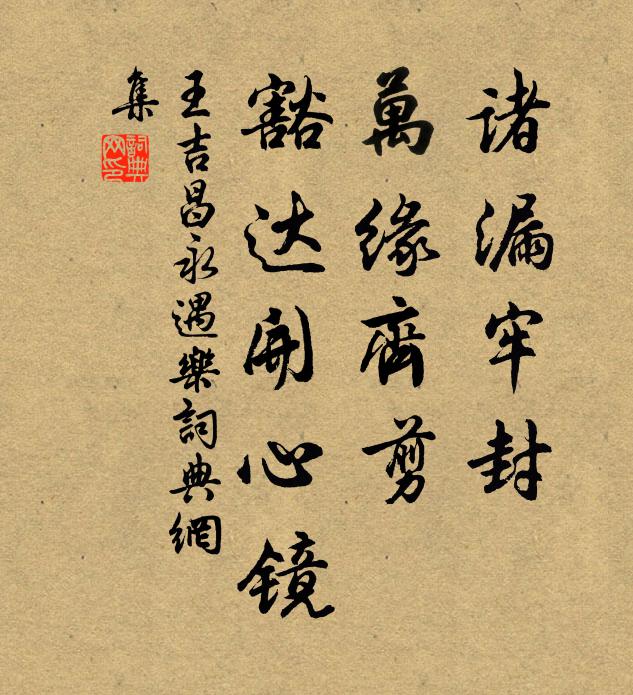 诸漏牢封
萬缘齊剪
豁达開心镜
王吉昌永遇樂詞典網
集
詞典网印